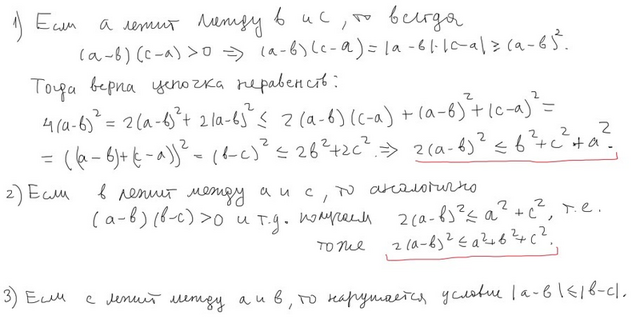 1) Если a лежит между b и c, то всегда
(a-b)(c-a)>0 ⇒ (a-b)(c-a)=|a-b|·|c-a|≥(a-b)².
Тогда верна цепочка неравенств:
4(a-b)²=2(a-b)²+2|a-b|²≤ 2(a-b)(c-a)+(a-b)²+(c-a)²=
=((a-b)+(c-a))²=(b-c)²≤2b²+2c².⇒ 2(a-b)²≤b²+c²+a².
2) Если b лежит между a и c, то аналогично
(a-b)(b-c)>0 и т.д. получаем 2(a-b)²≤a²+c², т.е.
тоже 2(a-b)²≤a²+b²+c².
3) Если c лежит между a и b, то нарушается условие |a-b|≤|b-c|.